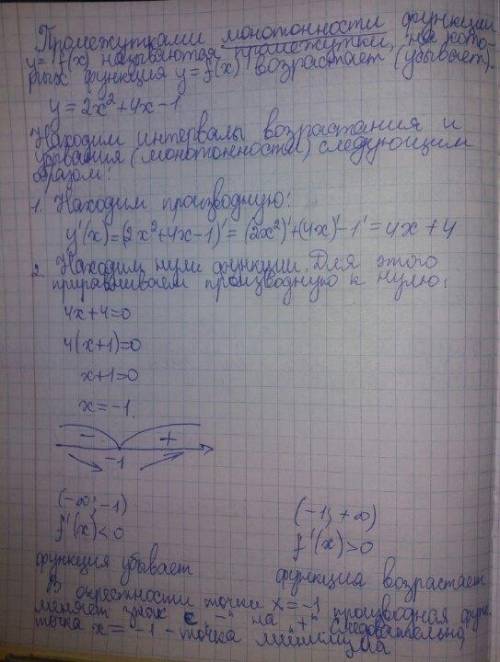 Промежутками монотонности функции
y=f(x) называются промежутки, на кото-
рых функция y=f(x) возрастает (убывает).
y=2x²+4x-1
Находим интервалы возрастания и
убывания (монотонности) следующим
образом:
1. Находим производную:
y'(x)=(2x²+4x-1)'=(2x²)'+(4x)'-1'=4x+4
2. Находим нули функции. Для этого
приравниваем производную к нулю:
4x+4=0
4(x+1)=0
x+1=0
x=-1.
- +
-1
(-∞;-1) (-1;+∞)
f'(x)<0 f'(x)>0
функция убывает функция возрастает
В окрестности точки x=-1 производная функ.
меняет знак с "-" на "+" следовательно,
точка x=-1 - точка минимума